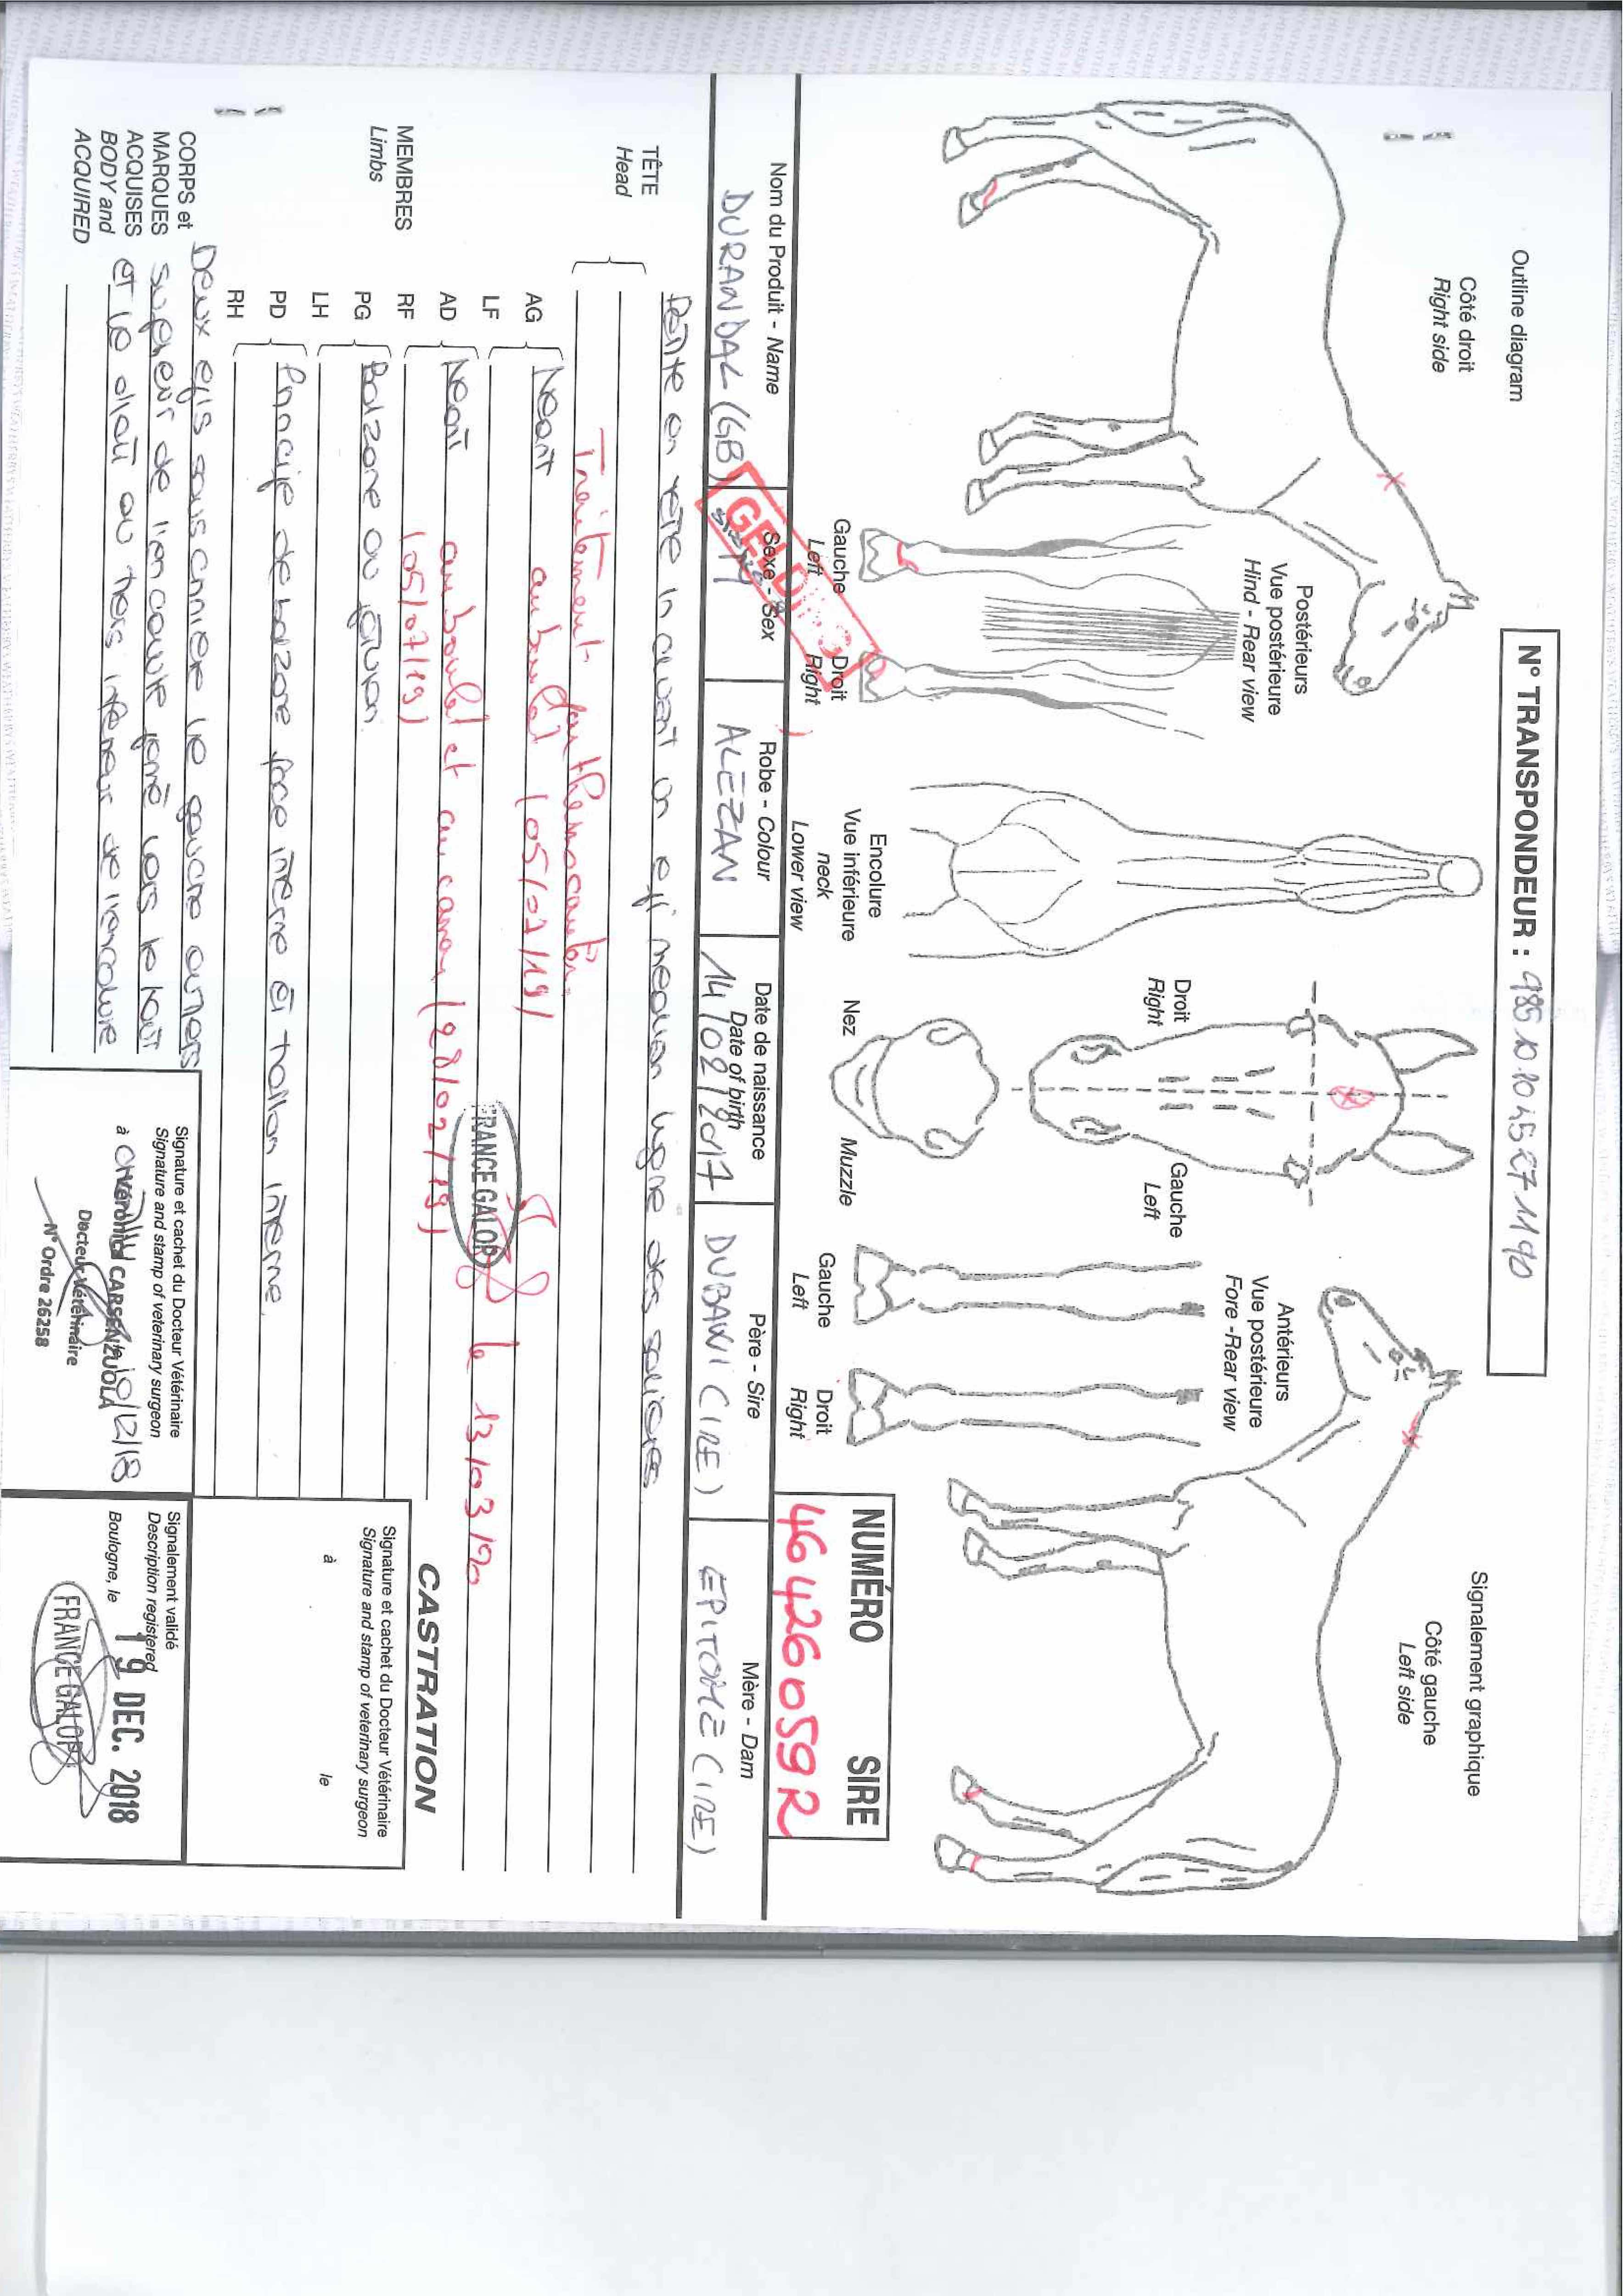 N° TRANSPONDEUR :
Outline diagram
Signalement graphique
Côté droit
Right side
Côté gauche
Left side
Postérieurs
Vue postérieure
Hind - Rear view
Gauche
Left
Droit
Right
Encolure
Vue inférieure
neck
Lower view
Droit
Right
Gauche
Left
Nez
Muzzle
Antérieurs
Vue postérieure
Fore -Rear view
Gauche
Left
Droit
Right
NUMÉRO SIRE
46426059R
GELDING
Nom du Produit - Name
Sexe - Sex
Robe - Colour
Date de naissance
Date of birth
Père - Sire
Mère - Dam
DURANDAL (GB)
ALEZAN
14/02/2017
DUBAWI (IRE)
EPITOME (IRE)
TÊTE
Head
Pelote en tête incluant un épi médian ligne des salières
Traitement par thermocautère
MEMBRES
Limbs
AG
LF
Neant au boulet (05/07/19)
AD
RF
Neant au boulet et au canon (28/02/19)
(05/07/19)
FRANCE GALOP
le 13/03/20
PG
LH
Balzane au paturon
PD
RH
Principe de balzane face interne et talon interne
CASTRATION
Signature et cachet du Docteur Vétérinaire
Signature and stamp of veterinary surgeon
à le
CORPS et
MARQUES
ACQUISES
BODY and
ACQUIRED
Deux épis sous crinière le gauche au tiers
supérieur de l'encolure penné vers le haut
et le droit au tiers inférieur de l'encolure
Signature et cachet du Docteur Vétérinaire
Signature and stamp of veterinary surgeon
à 10/12/18
CARSENZUOLA
Docteur Vétérinaire
N° Ordre 26258
Signalement validé
Description registered
Boulogne, le 19 DEC. 2018
FRANCE GALOP